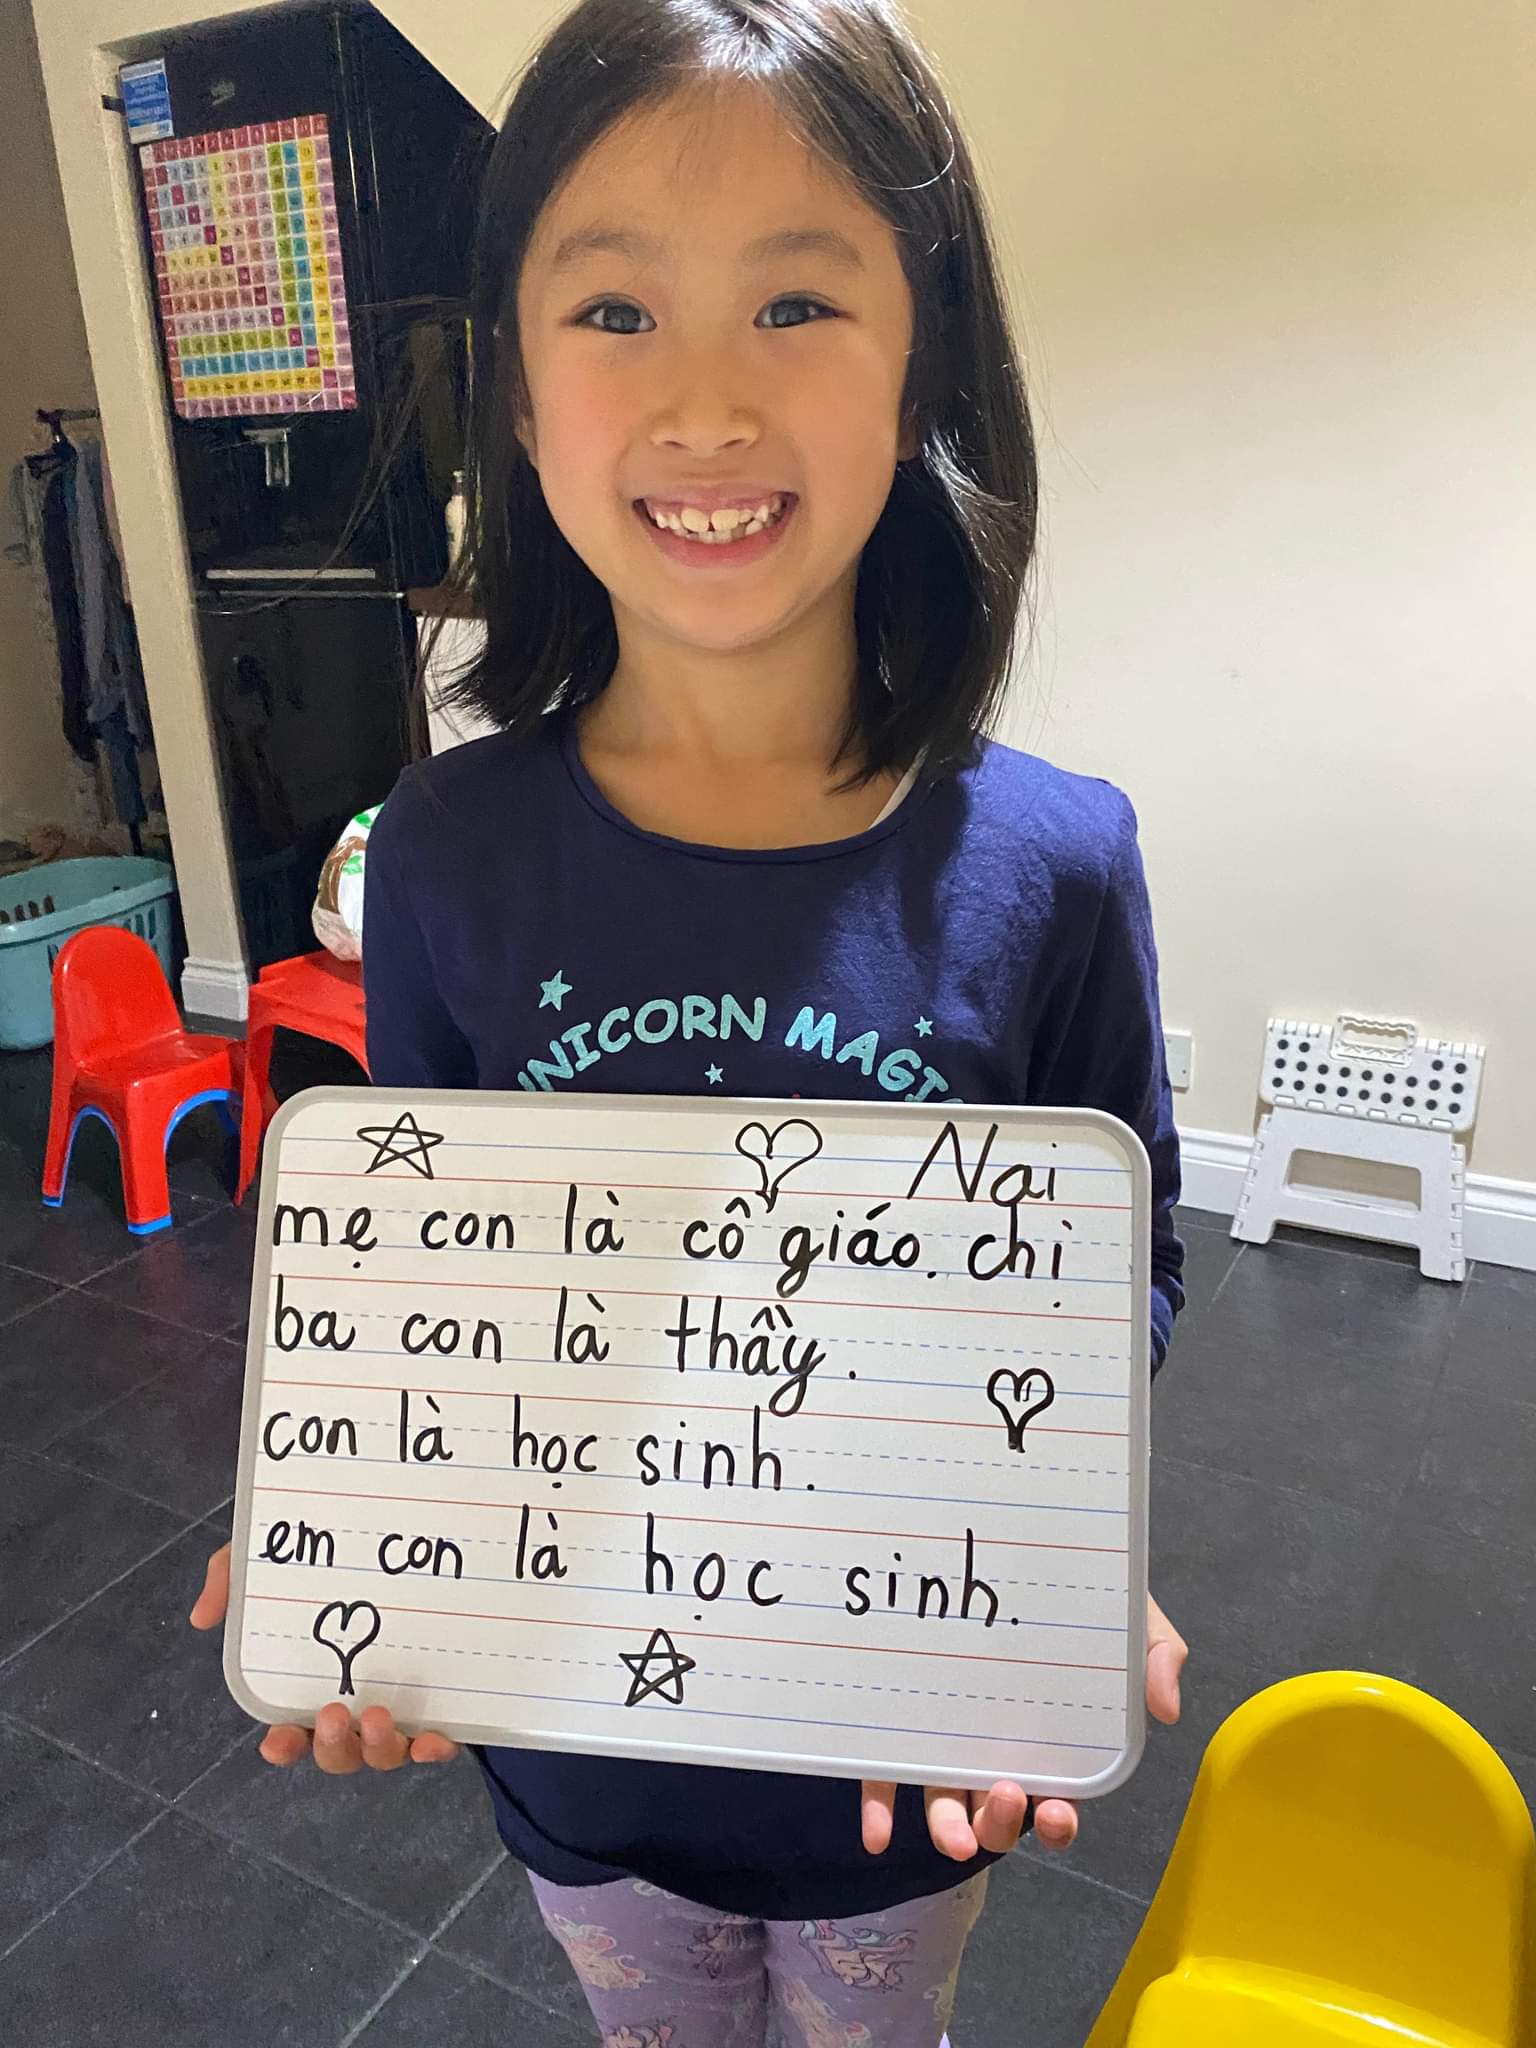 UNICORN MAGIC
Nai
mẹ con là cô giáo. chị
ba con là thầy.
con là học sinh.
em con là học sinh.